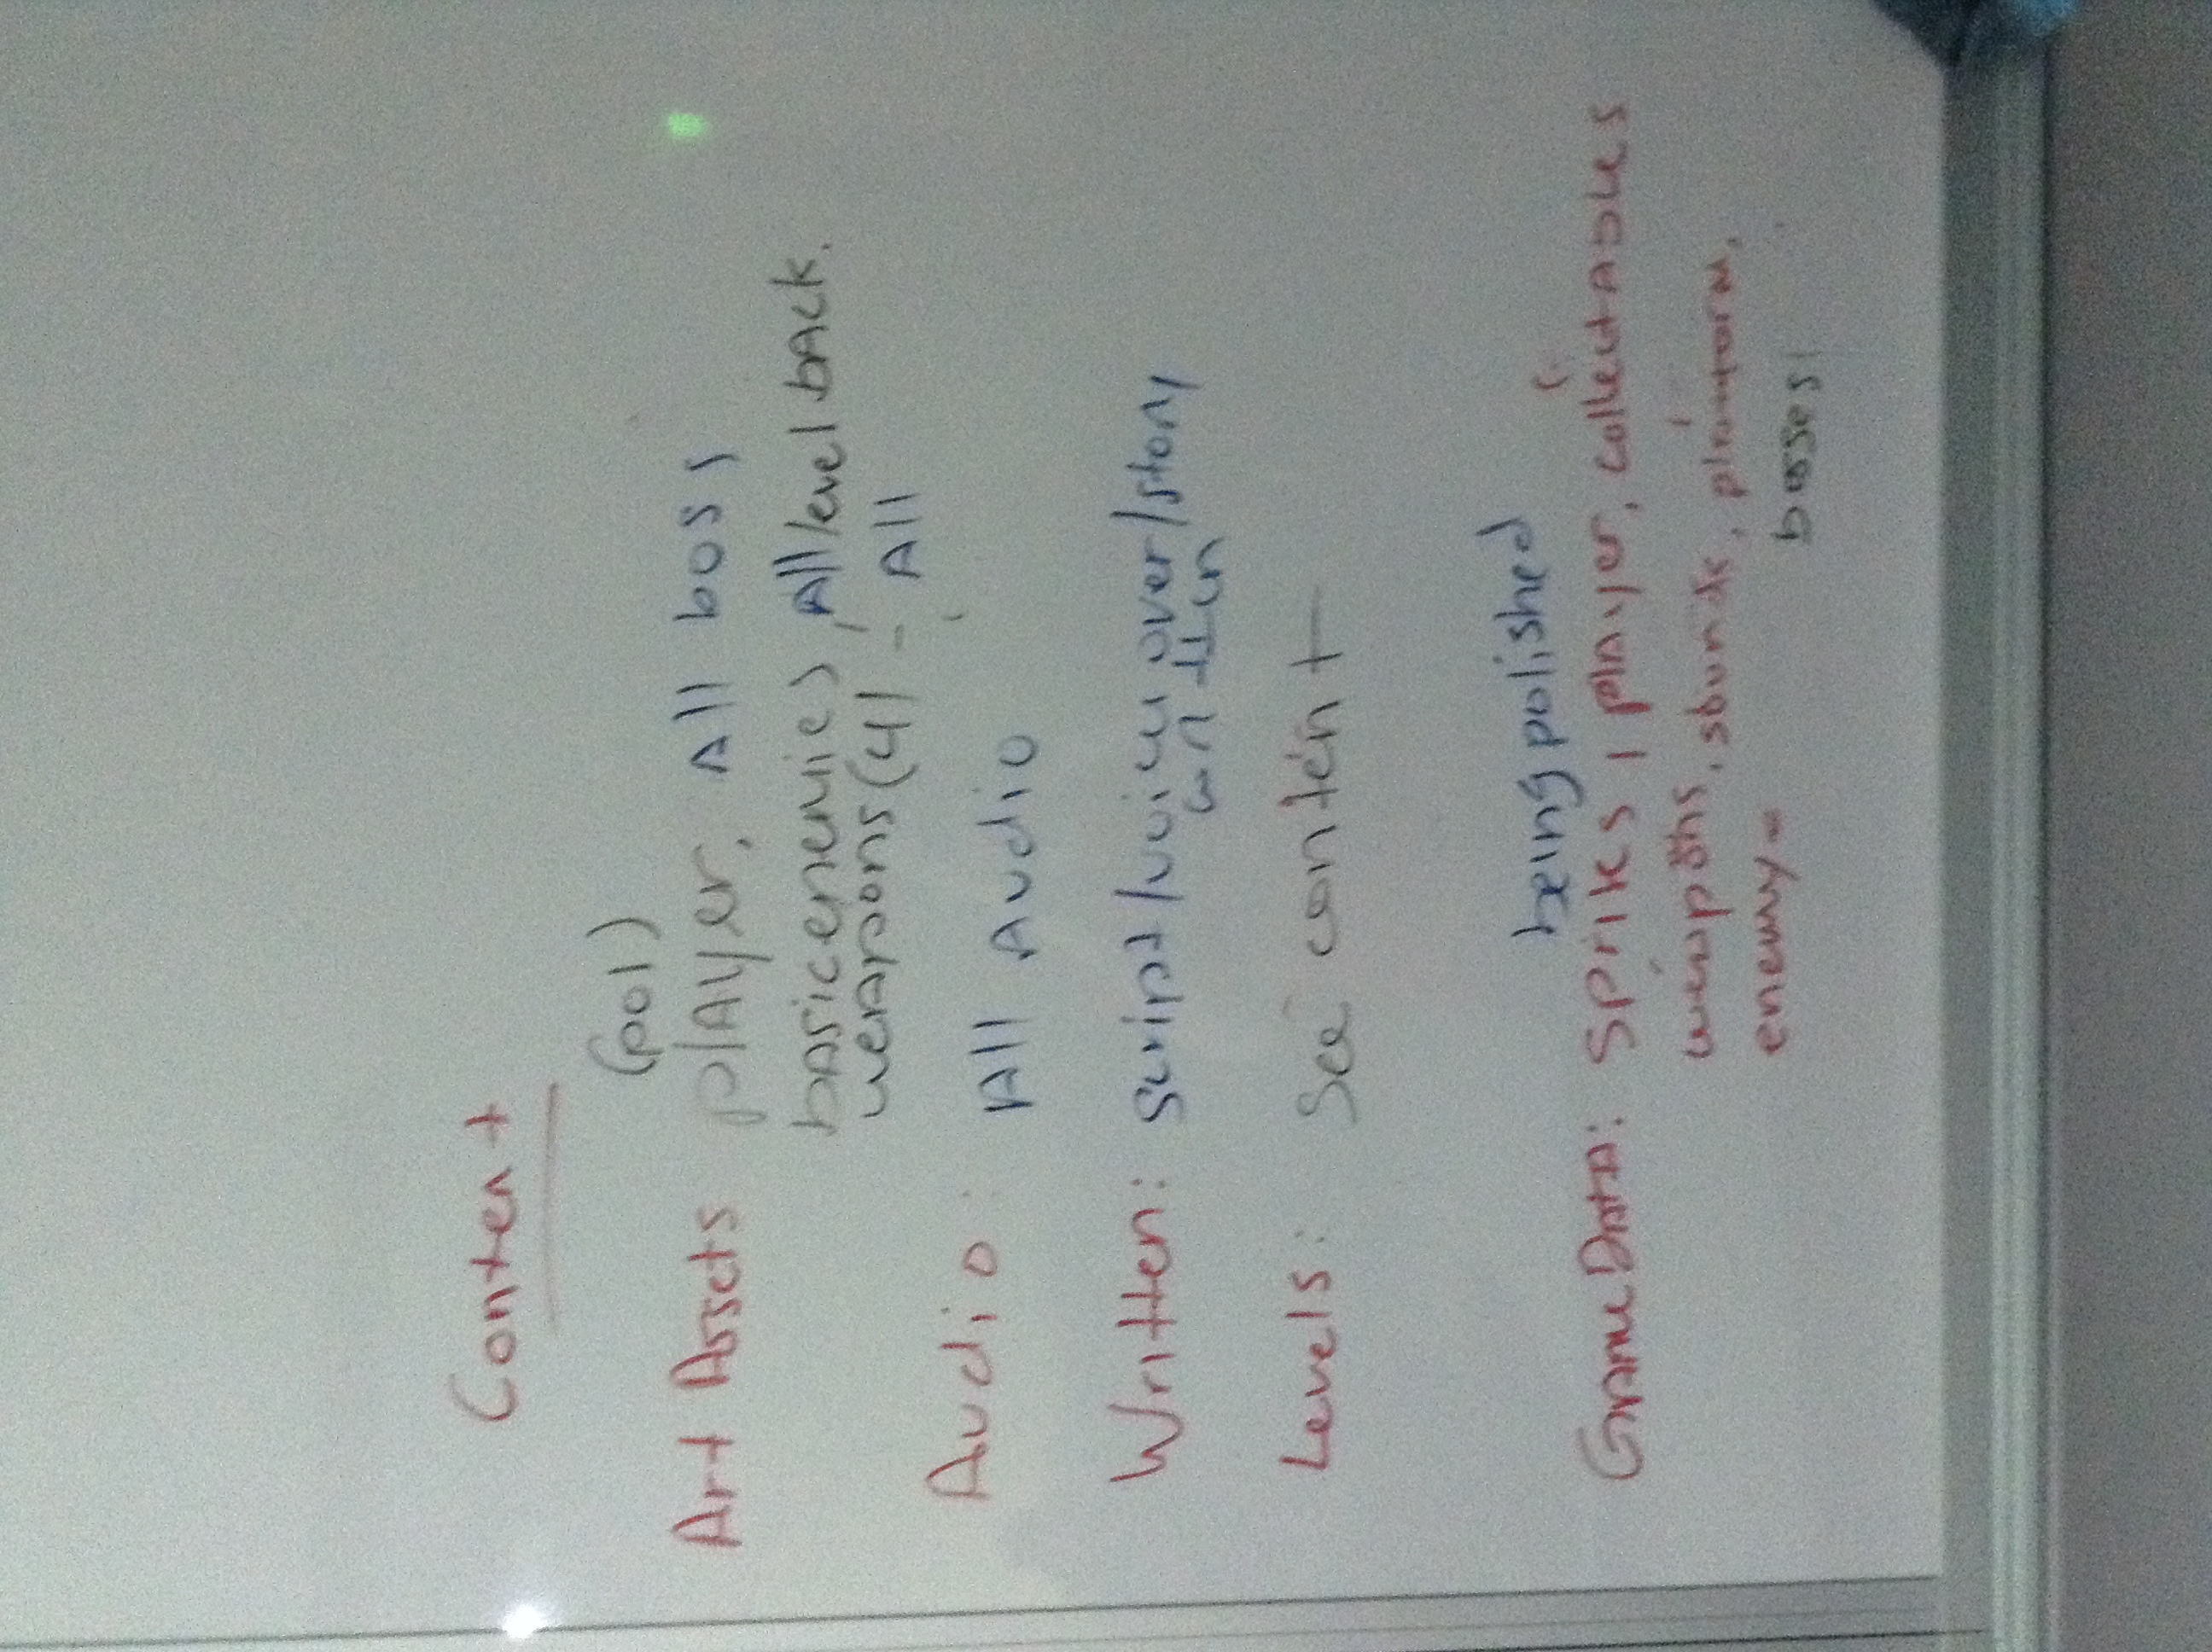 Content
(pol)
Art Assets player, All boss
basic enemies, All level back.
weapons (4) - All
Audio: All Audio
Written: script/voice over/story
written
Levels: See content
being polished
Game Data: Sprites, player, collectables
weapons, sounds, platform,
enemy -
bosses